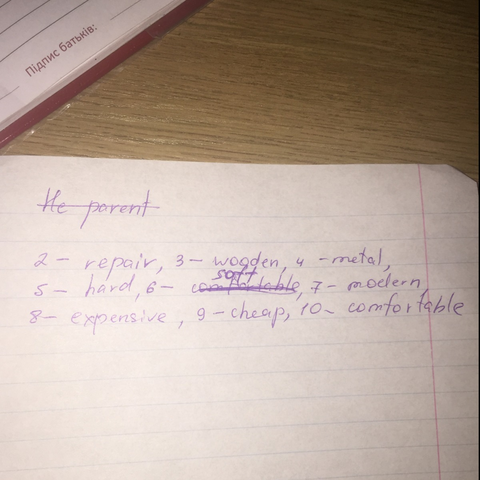 Підпис батьків:
He parent
2 - repair, 3 - wooden, 4 - metal,
soft
5 - hard, 6 - comfortable, 7 - modern,
8 - expensive, 9 - cheap, 10 - comfortable